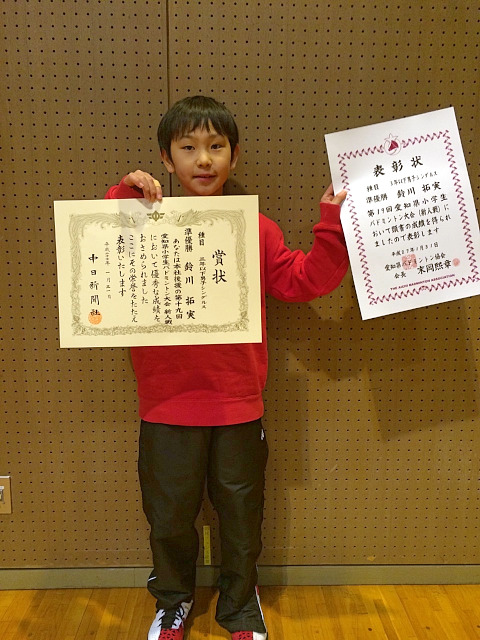 賞状
種目 三年以下男子シングルス
準優勝 鈴川 拓実
あなたは本社後援の第十九回
愛知県小学生バドミントン大会 新人戦
において優秀な成績を
おさめられました
ここにその栄誉をたたえ
表彰いたします
中日新聞社
表彰状
種目 3年以下男子シングルス
準優勝 鈴川 拓実
第19回愛知県小学生
バドミントン大会(新人戦)に
おいて頭書の成績を得られ
ましたので表彰します
平成27年1月31日
会長
THE AICHI BADMINTON ASSOCIATION